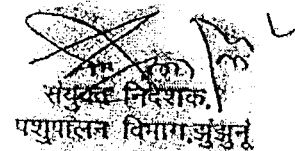 संयुक्त निदेशक,
पशुपालन विभाग,झुंझुनू